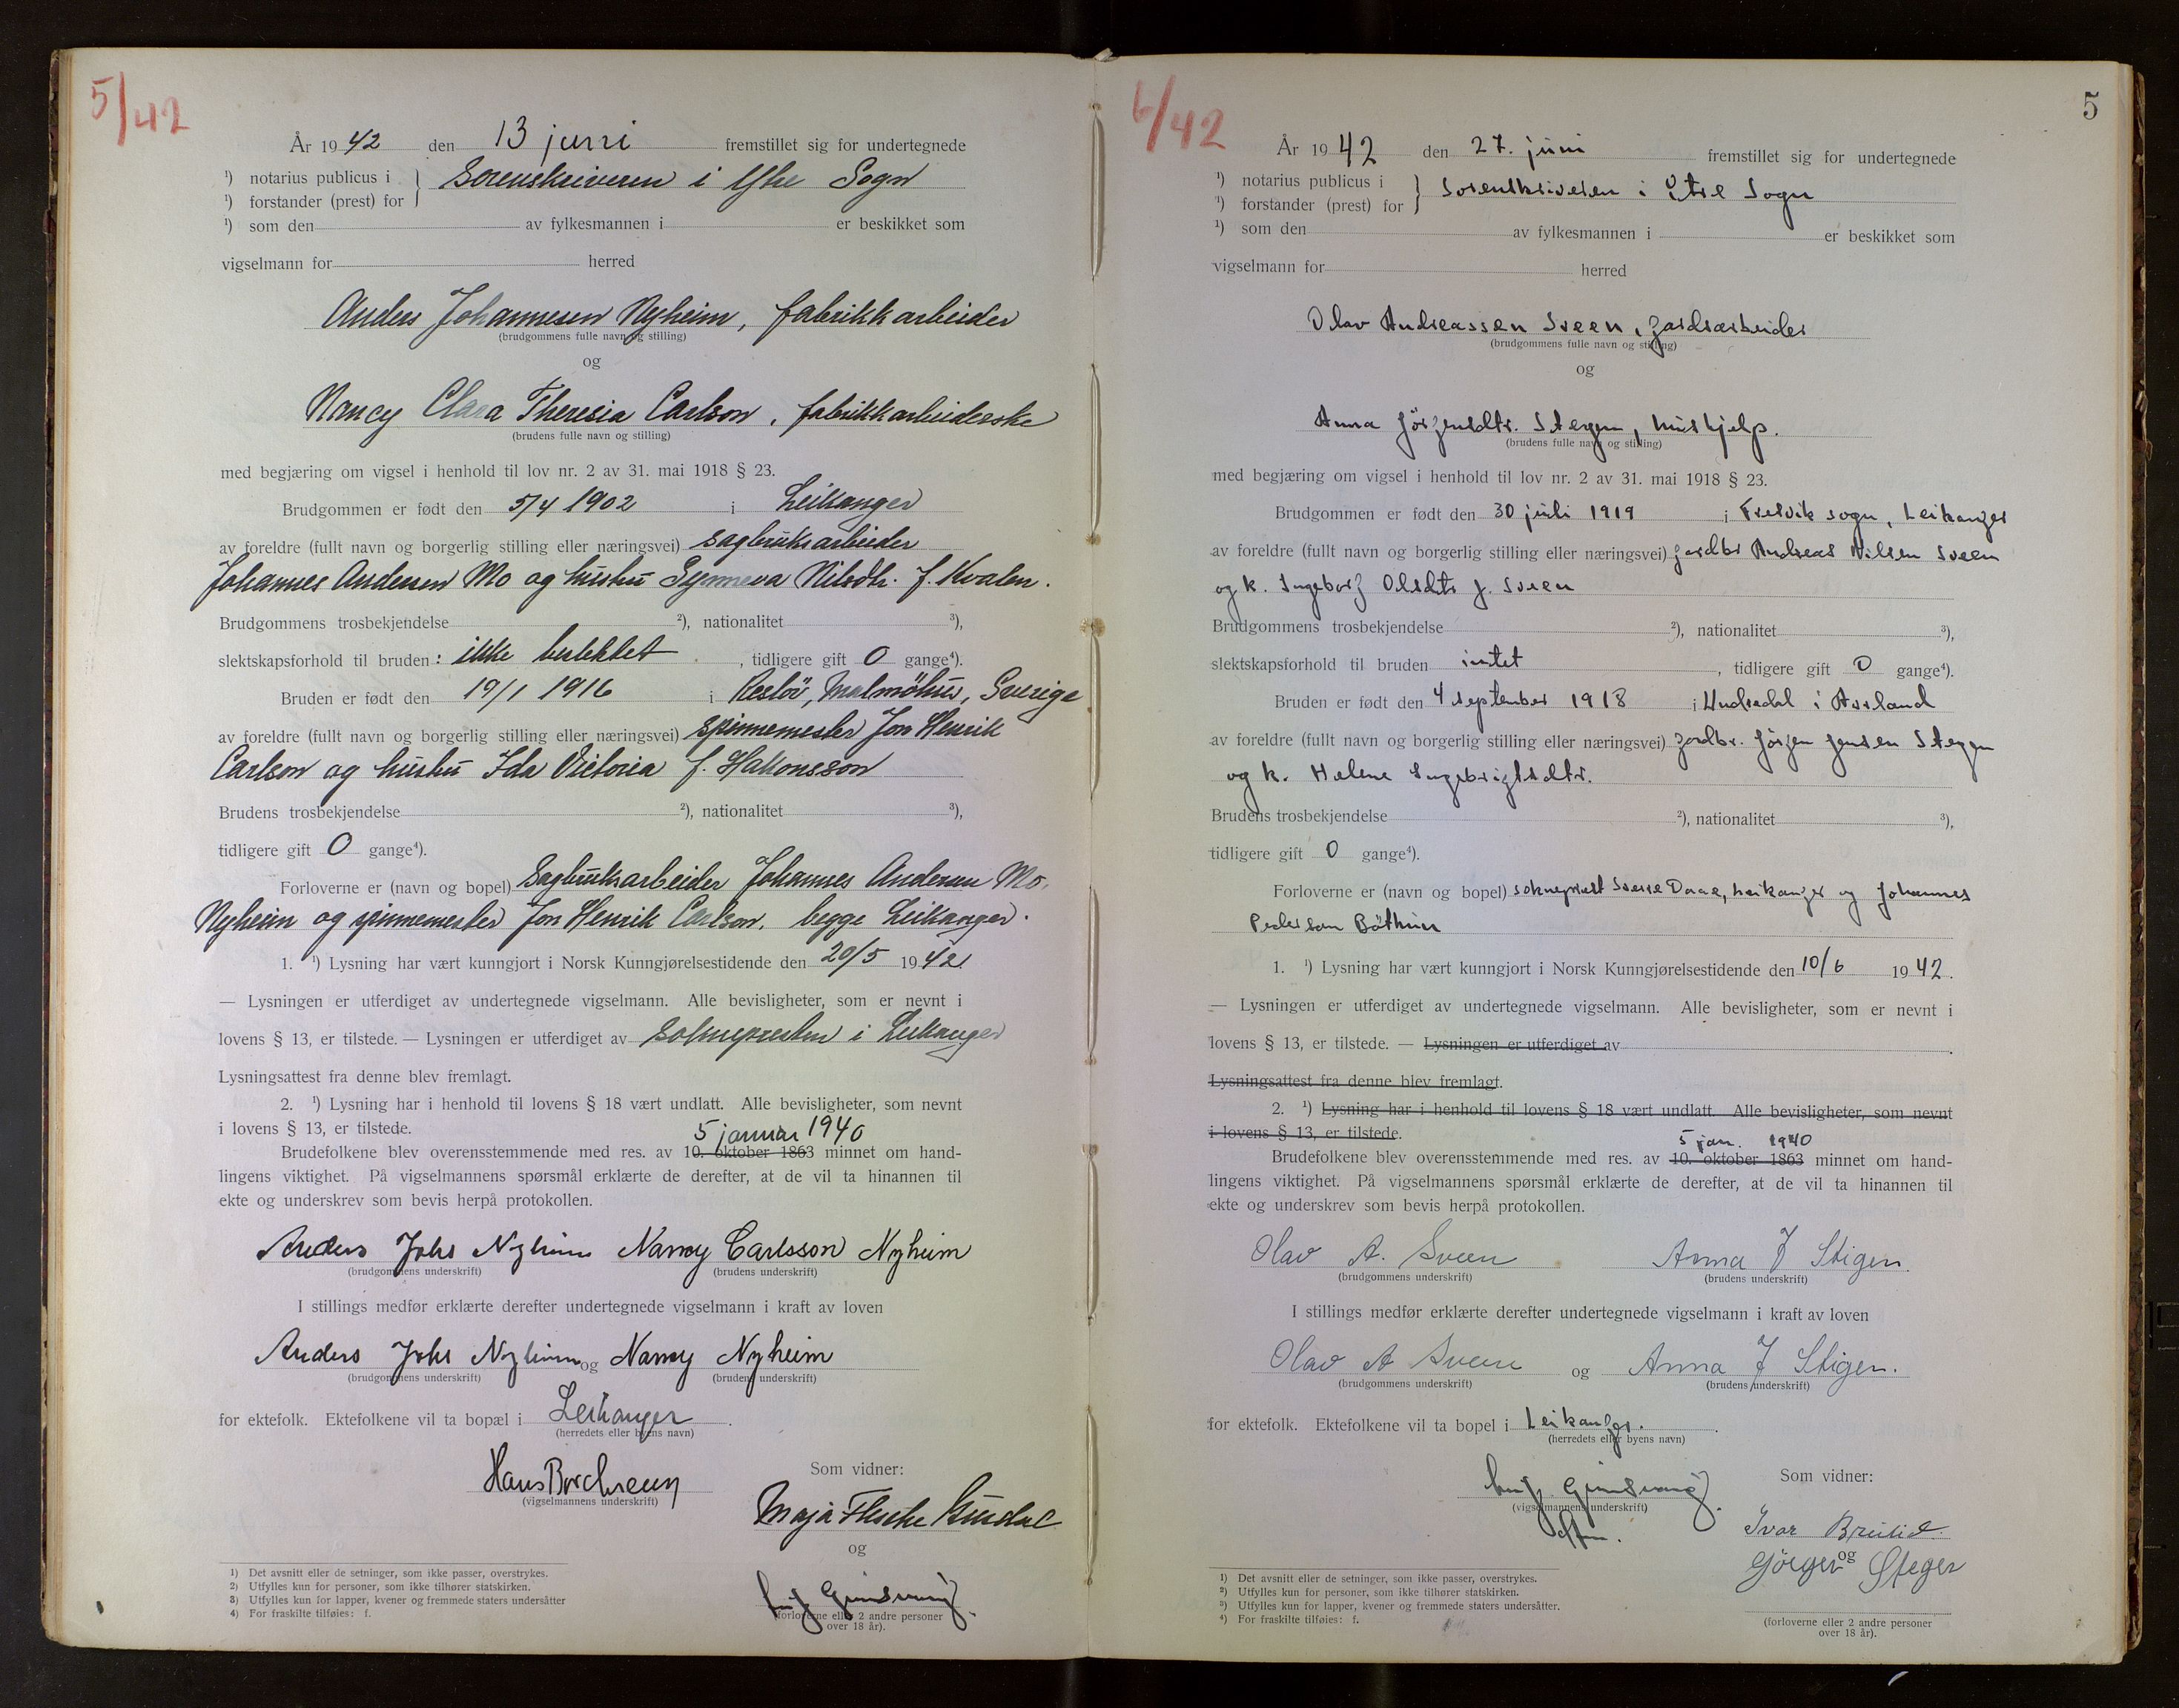 5/42
År 1942 den 13 juni fremstillet sig for undertegnede
¹) notarius publicus i } Sorenskriveren i Ytre Sogn
¹) forstander (prest) for
¹) som den av fylkesmannen i er beskikket som
vigselmann for herred
Anders Johannesen Nyheim, fabrikkarbeider
(brudgommens fulle navn og stilling)
og
Nancy Clara Theresia Carlson, fabrikkarbeiderske
(brudens fulle navn og stilling)
med begjæring om vigsel i henhold til lov nr. 2 av 31. mai 1918 § 23.
Brudgommen er født den 5/4 1902 i Leikanger
av foreldre (fullt navn og borgerlig stilling eller næringsvei) sagbruksarbeider
Johannes Andersen Mo og hustru Synneva Nilsdtr. f. Kvalen.
Brudgommens trosbekjendelse ²), nationalitet ³),
slektskapsforhold til bruden: ikke beslektet, tidligere gift 0 gange⁴).
Bruden er født den 19/1 1916 i Reslöv, Malmöhus, Sverige
av foreldre (fullt navn og borgerlig stilling eller næringsvei) spinnemester Jon Henrik
Carlson og hustru Ida Victoria f. Hakonsson
Brudens trosbekjendelse ²), nationalitet ³),
tidligere gift 0 gange⁴).
Forloverne er (navn og bopel) Sagbruksarbeider Johannes Andersen Mo,
Nyheim og spinnemester Jon Henrik Carlson, begge Leikanger.
1. ¹) Lysning har vært kunngjort i Norsk Kunngjørelsestidende den 20/5 1942
— Lysningen er utferdiget av undertegnede vigselmann. Alle bevisligheter, som er nevnt i
lovens § 13, er tilstede. — Lysningen er utferdiget av soknepresten i Leikanger
Lysningsattest fra denne blev fremlagt.
2. ¹) Lysning har i henhold til lovens § 18 vært undlatt. Alle bevisligheter, som nevnt
i lovens § 13, er tilstede.
5 januar 1940
Brudefolkene blev overensstemmende med res. av 10. oktober 1863 minnet om hand-
lingens viktighet. På vigselmannens spørsmål erklærte de derefter, at de vil ta hinannen til
ekte og underskrev som bevis herpå protokollen.
Anders Johs Nyheim Nancy Carlsson Nyheim
(brudgommens underskrift) (brudens underskrift)
I stillings medfør erklærte derefter undertegnede vigselmann i kraft av loven
Anders Johs Nyheim og Nancy Nyheim
(brudgommens underskrift) (brudens underskrift)
for ektefolk. Ektefolkene vil ta bopæl i Leikanger.
(herredets eller byens navn)
Hans
(vigselmannens underskrift)
Som vidner:
Maja Flesche
og
(forloverne eller 2 andre personer
over 18 år).
1) Det avsnitt eller de setninger, som ikke passer, overstrykes.
2) Utfylles kun for personer, som ikke tilhører statskirken.
3) Utfylles kun for lapper, kvener og fremmede staters undersåtter
4) For fraskilte tilføies: f.
6/42
5
År 1942 den 27. juni fremstillet sig for undertegnede
¹) notarius publicus i } Sorenskriveren i Ytre Sogn
¹) forstander (prest) for
¹) som den av fylkesmannen i er beskikket som
vigselmann for herred
Olav Andreassen Sveen, gardsarbeider
(brudgommens fulle navn og stilling)
og
Anna Jörgensdtr. Stegen, hushjelp.
(brudens fulle navn og stilling)
med begjæring om vigsel i henhold til lov nr. 2 av 31. mai 1918 § 23.
Brudgommen er født den 30 juli 1919 i Fresvik sogn, Leikanger
av foreldre (fullt navn og borgerlig stilling eller næringsvei) gardbr Andreas Nilsen Sveen
og k. Ingeborg Olsdtr f. Sveen
Brudgommens trosbekjendelse ²), nationalitet ³),
slektskapsforhold til bruden intet, tidligere gift 0 gange⁴).
Bruden er født den 4 september 1918 i Undredal i Aurland
av foreldre (fullt navn og borgerlig stilling eller næringsvei) gardbr. Jörgen Jensen Stegen
og k. Helene Ingebrigtsdtr.
Brudens trosbekjendelse ²), nationalitet ³),
tidligere gift 0 gange⁴).
Forloverne er (navn og bopel) sokneprest Sverre Daae, Leikanger og Johannes
Pederson Böthun
1. ¹) Lysning har vært kunngjort i Norsk Kunngjørelsestidende den 10/6 1942.
— Lysningen er utferdiget av undertegnede vigselmann. Alle bevisligheter, som er nevnt i
lovens § 13, er tilstede. — Lysningen er utferdiget av
Lysningsattest fra denne blev fremlagt.
2. ¹) Lysning har i henhold til lovens § 18 vært undlatt. Alle bevisligheter, som nevnt
i lovens § 13, er tilstede.
5 jan. 1940
Brudefolkene blev overensstemmende med res. av 10. oktober 1863 minnet om hand-
lingens viktighet. På vigselmannens spørsmål erklærte de derefter, at de vil ta hinannen til
ekte og underskrev som bevis herpå protokollen.
Olav A. Sveen Anna J Stigen.
(brudgommens underskrift) (brudens underskrift)
I stillings medfør erklærte derefter undertegnede vigselmann i kraft av loven
Olav A Sveen og Anna J Stigen.
(brudgommens underskrift) (brudens underskrift)
for ektefolk. Ektefolkene vil ta bopel i Leikanger.
(herredets eller byens navn)
(vigselmannens underskrift)
Som vidner:
Ivar
og
Jörgen Steger
(forloverne eller 2 andre personer
over 18 år).
1) Det avsnitt eller de setninger, som ikke passer, overstrykes.
2) Utfylles kun for personer, som ikke tilhører statskirken.
3) Utfylles kun for lapper, kvener og fremmede staters undersåtter.
4) For fraskilte tilføies: f.